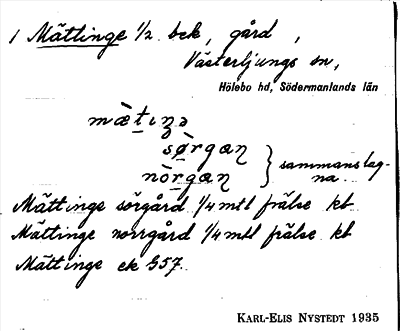 1 Mättinge 1/2 bek, gård,
Västerljungs sn,
Hölebo hd, Södermanlands län
mæ̀tıŋə
sø̀rgæɳ
nòrgæɳ } sammanslag-
na
Mättinge sörgård 1/4 mtl frälse kb
Mättinge norrgård 1/4 mtl frälse kb
Mättinge ek 357.
KARL-ELIS NYSTEDT 1935